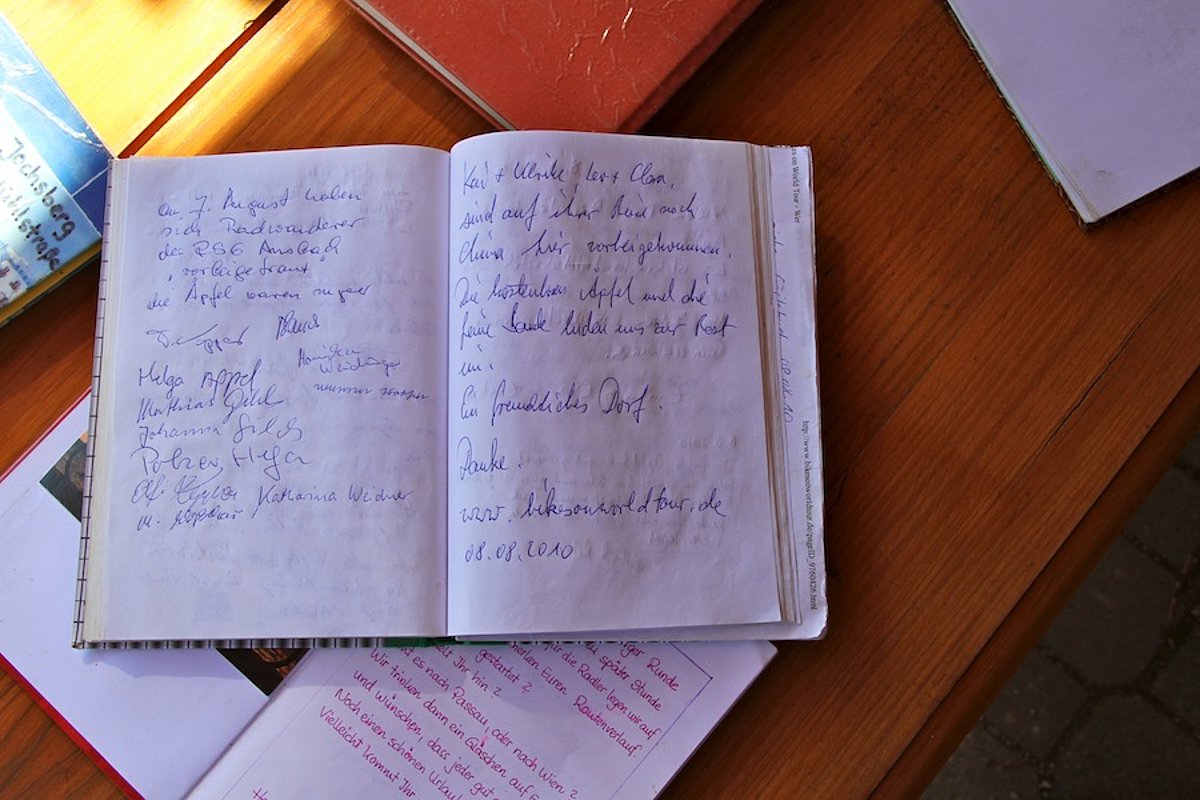 Am 7. August haben
sich Radwanderer
der RSG Ansbach
"vorbeigetraut"
die Äpfel waren super
Helga Appel
Mathias
Johanna
Katharina Weidner
Kai + Ulrike Clara,
sind auf ihrer Reise nach
China hier vorbeigekommen.
Die kostenlosen Äpfel und die
feine Bank luden uns zur Rast
ein.
Ein freundliches Dorf.
Danke.
www.bikesonworldtour.de
08.08.2010
es on World Tour - Wer
http://www.bikesonworldtour.de/pageID_9760426.html
Jochsberg
ühlstraße
iger Runde
zu später Stunde
für die Radler legen wir auf
merken Euren Routenverlauf.
gestartet?
lt Ihr hin?
t es nach Passau oder nach Wien?
Wir trinken dann ein Gläschen auf E
und wünschen, dass jeder gut
Noch einen schönen Urlau
Vielleicht kommt Ihr